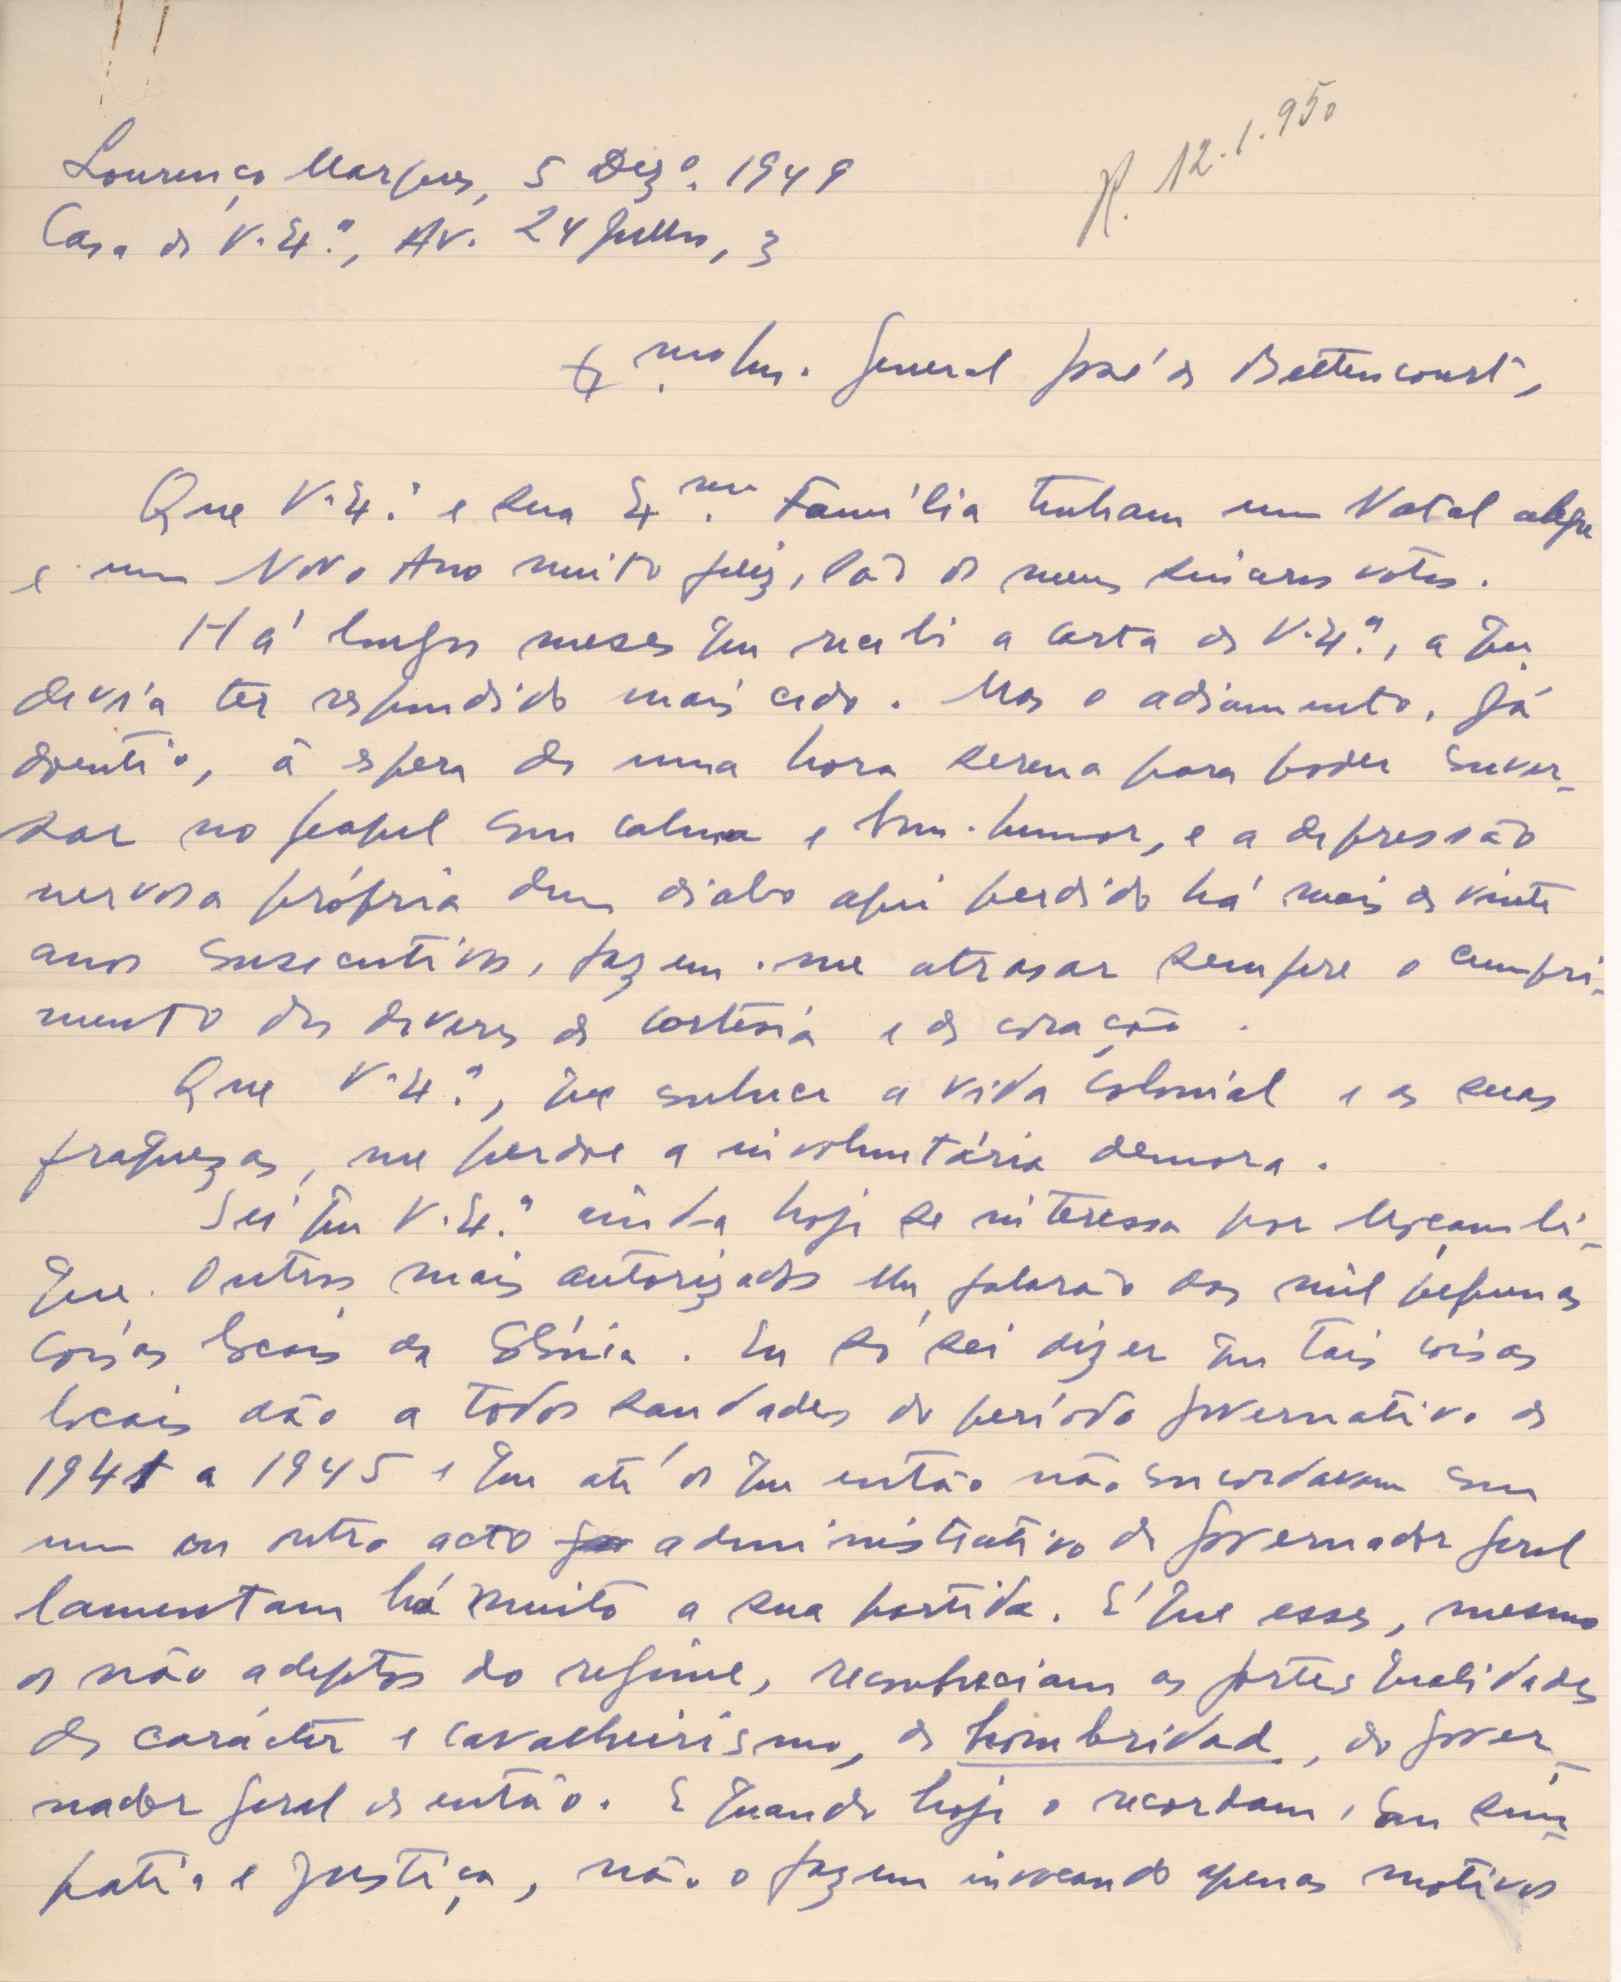 R. 12.1.950
Lourenço Marques, 5 Dezº. 1949
Casa de V. Exª., Av. 24 Julho, 3
Exmo Snr. General José de Bettencourt,
Que V. Exª. e sua Exma. Família tenham um Natal alegre
e um Novo Ano muito feliz, são os meus sinceros votos.
Há longos meses que recebi a carta de V. Exª., a que
devia ter respondido mais cedo. Mas o adiamento, já
doentio, à espera de uma hora serena para poder conver-
sar no papel com calma e bom-humor, e a depressão
nervosa própria dum diabo aqui perdido há mais de vinte
anos consecutivos, fazem-me atrasar sempre o cumpri-
mento dos deveres de cortesia e de coração.
Que V. Exª., que conhece a vida colonial e as suas
fraquezas, me perdoe a involuntária demora.
Sei que V. Exª. ainda hoje se interessa por Moçambi-
que. Outros mais autorizados lhe falarão das mil pequenas
coisas locais da Colónia. Eu só sei dizer que tais coisas
locais dão a todos saudades do período governativo de
1941 a 1945 e que até os que então não concordavam com
um ou outro acto administrativo do governador geral
lamentam há muito a sua partida. É que esses, mesmo
os não adeptos do regime, reconheciam as fortes qualidades
de carácter e cavalheirismo, de hombridad, do gover-
nador geral de então. E quando hoje o recordam, com sim-
patia e justiça, não o fazem invocando apenas motivos